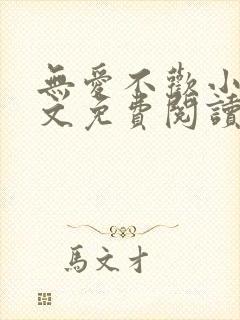 無愛不歡小
文免費閱讀
馬文才